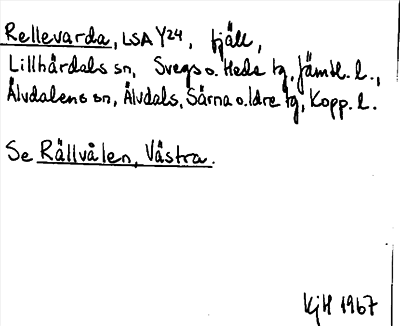 Rellevarda, LSA Y24, fjäll,
Lillhärdals sn, Svegs o. Hede tg, Jämtl. l.,
Älvdalens sn, Älvdals, Särna o. Idre tg, Kopp. l.
Se Rällvålen, Västra.
KjH 1967